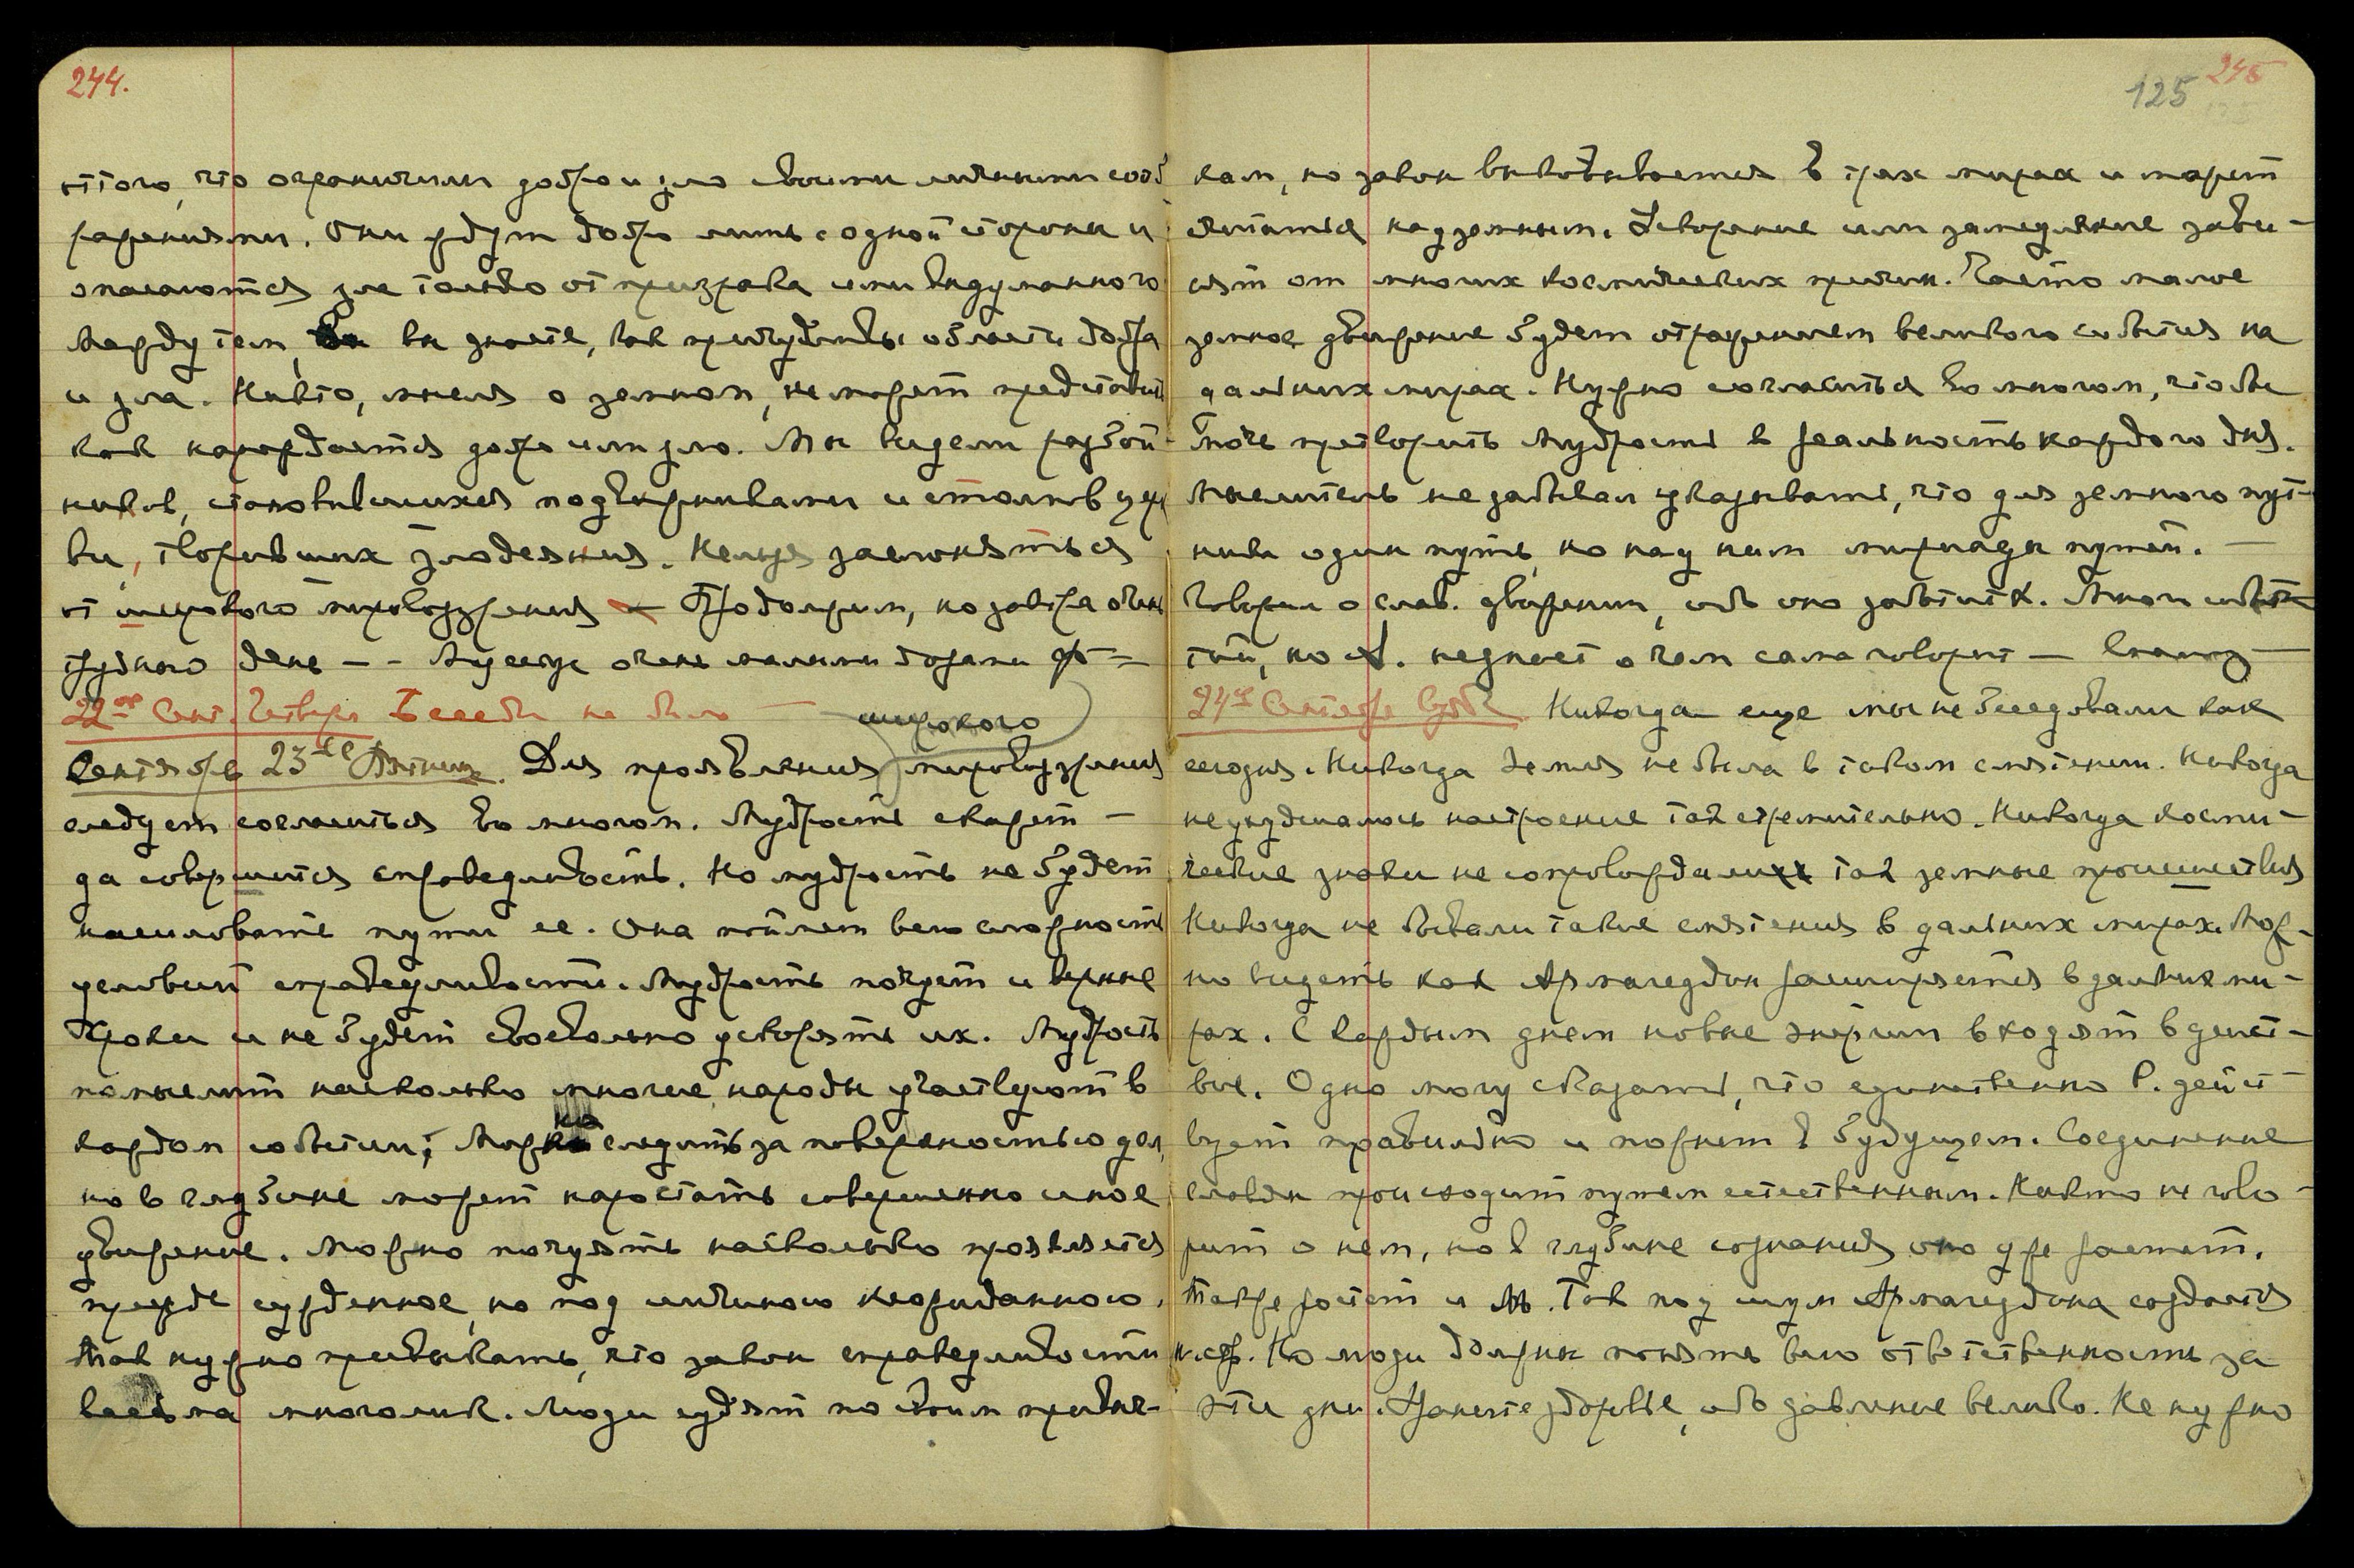 244.
оттого, что ограничили добро и зло своими личными сооб
ражениями. Они ждут добро лишь с одной стороны и
опасаются зла только от призрака ими выдуманного
Между тем, вы знаете, как причудливы области добра
и зла. Никто, мысля о земном, не может представить
как нарождается добро или зло. Мы видели разбой-
ников, становившихся подвижниками и столпов церк
ви, творивших злодеяния. Нельзя заслоняться
от широкого мировоззрения — Продолжим, но завтра очень
трудного день - - очень малыми дозами
22ое Сент. Четверг Беседы не было —
широкого
Сентябрь 23ье Пятница. Для проявления мировоззрения
следует согласиться во многом. Мудрость скажет —
да совершится справедливость. Но мудрость не будет
насиловать пути ее. Она поймет всю сложность
условий справедливости. Мудрость почует и верные
сроки и не будет своевольно ускорять их. Мудрость
помыслит насколько многие народы участвуют в
каждом событии; Можно следить за поверхностью дел,
но в глубине может нарастать совершенно иное
движение. Можно почуять насколько проявляется
прежде сужденное, но под личиною неожиданного.
Так нужно привыкать, что закон справедливости
весьма многолик. Люди судят по своим привыч-
125 245
кам, но закон выковывается в трех мирах и может
явиться надземным. Ускорение или замедление зави-
сят от многих космических причин. Часто малое
земное движение будет отражением великого события на
дальних мирах. Нужно согласиться во многом, чтобы
точе претворить Мудрость в реальность каждого дня.
Мыслитель не забывал указывать, что для земного пут-
ника один путь, но над ним мириады путей. —
Говорил о слав. движении, ибо оно забытик. Много событ
тий, но не знает о чем сама говорит —
24ое Сентября Суббота Никогда еще мы не беседовали как
сегодня. Никогда Земля не была в таком смятении. Никогда
не ухудшалось настроение так стремительно. Никогда косми-
ческие знаки не сопровождали так земные происшествия
Никогда не бывали такие смятения в дальних мирах. Мож-
но видеть как Армагеддон расширяется в дальних ми-
рах. С каждым днем новые энергии входят в дейст-
вие. Одно могу сказать, что единственно Р. дейст-
вует правильно и пожнет в будущем. Соединение
славян происходит путем естественным. Никто не гово-
рит о нем, но в глубине сознания оно уже растет.
Также растет и М. Так под шум Армагеддона создается
Но люди должны понять всю ответственность за
эти дни. Храните здоровье, ибо давление велико. Не нужно